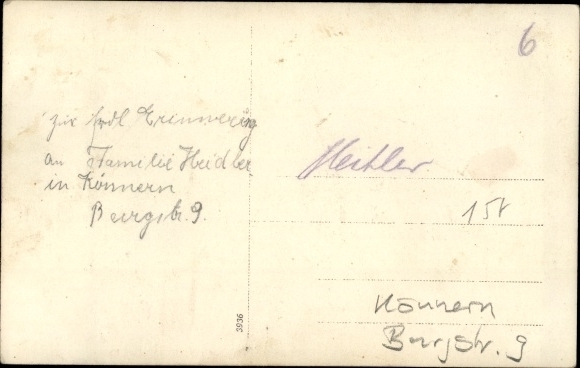 zur frdl Erinnerung
an Familie Heidler
in Könnern
Burgstr. 9.
6
Heihler
15t
Könnern
Burgstr. 9
3936